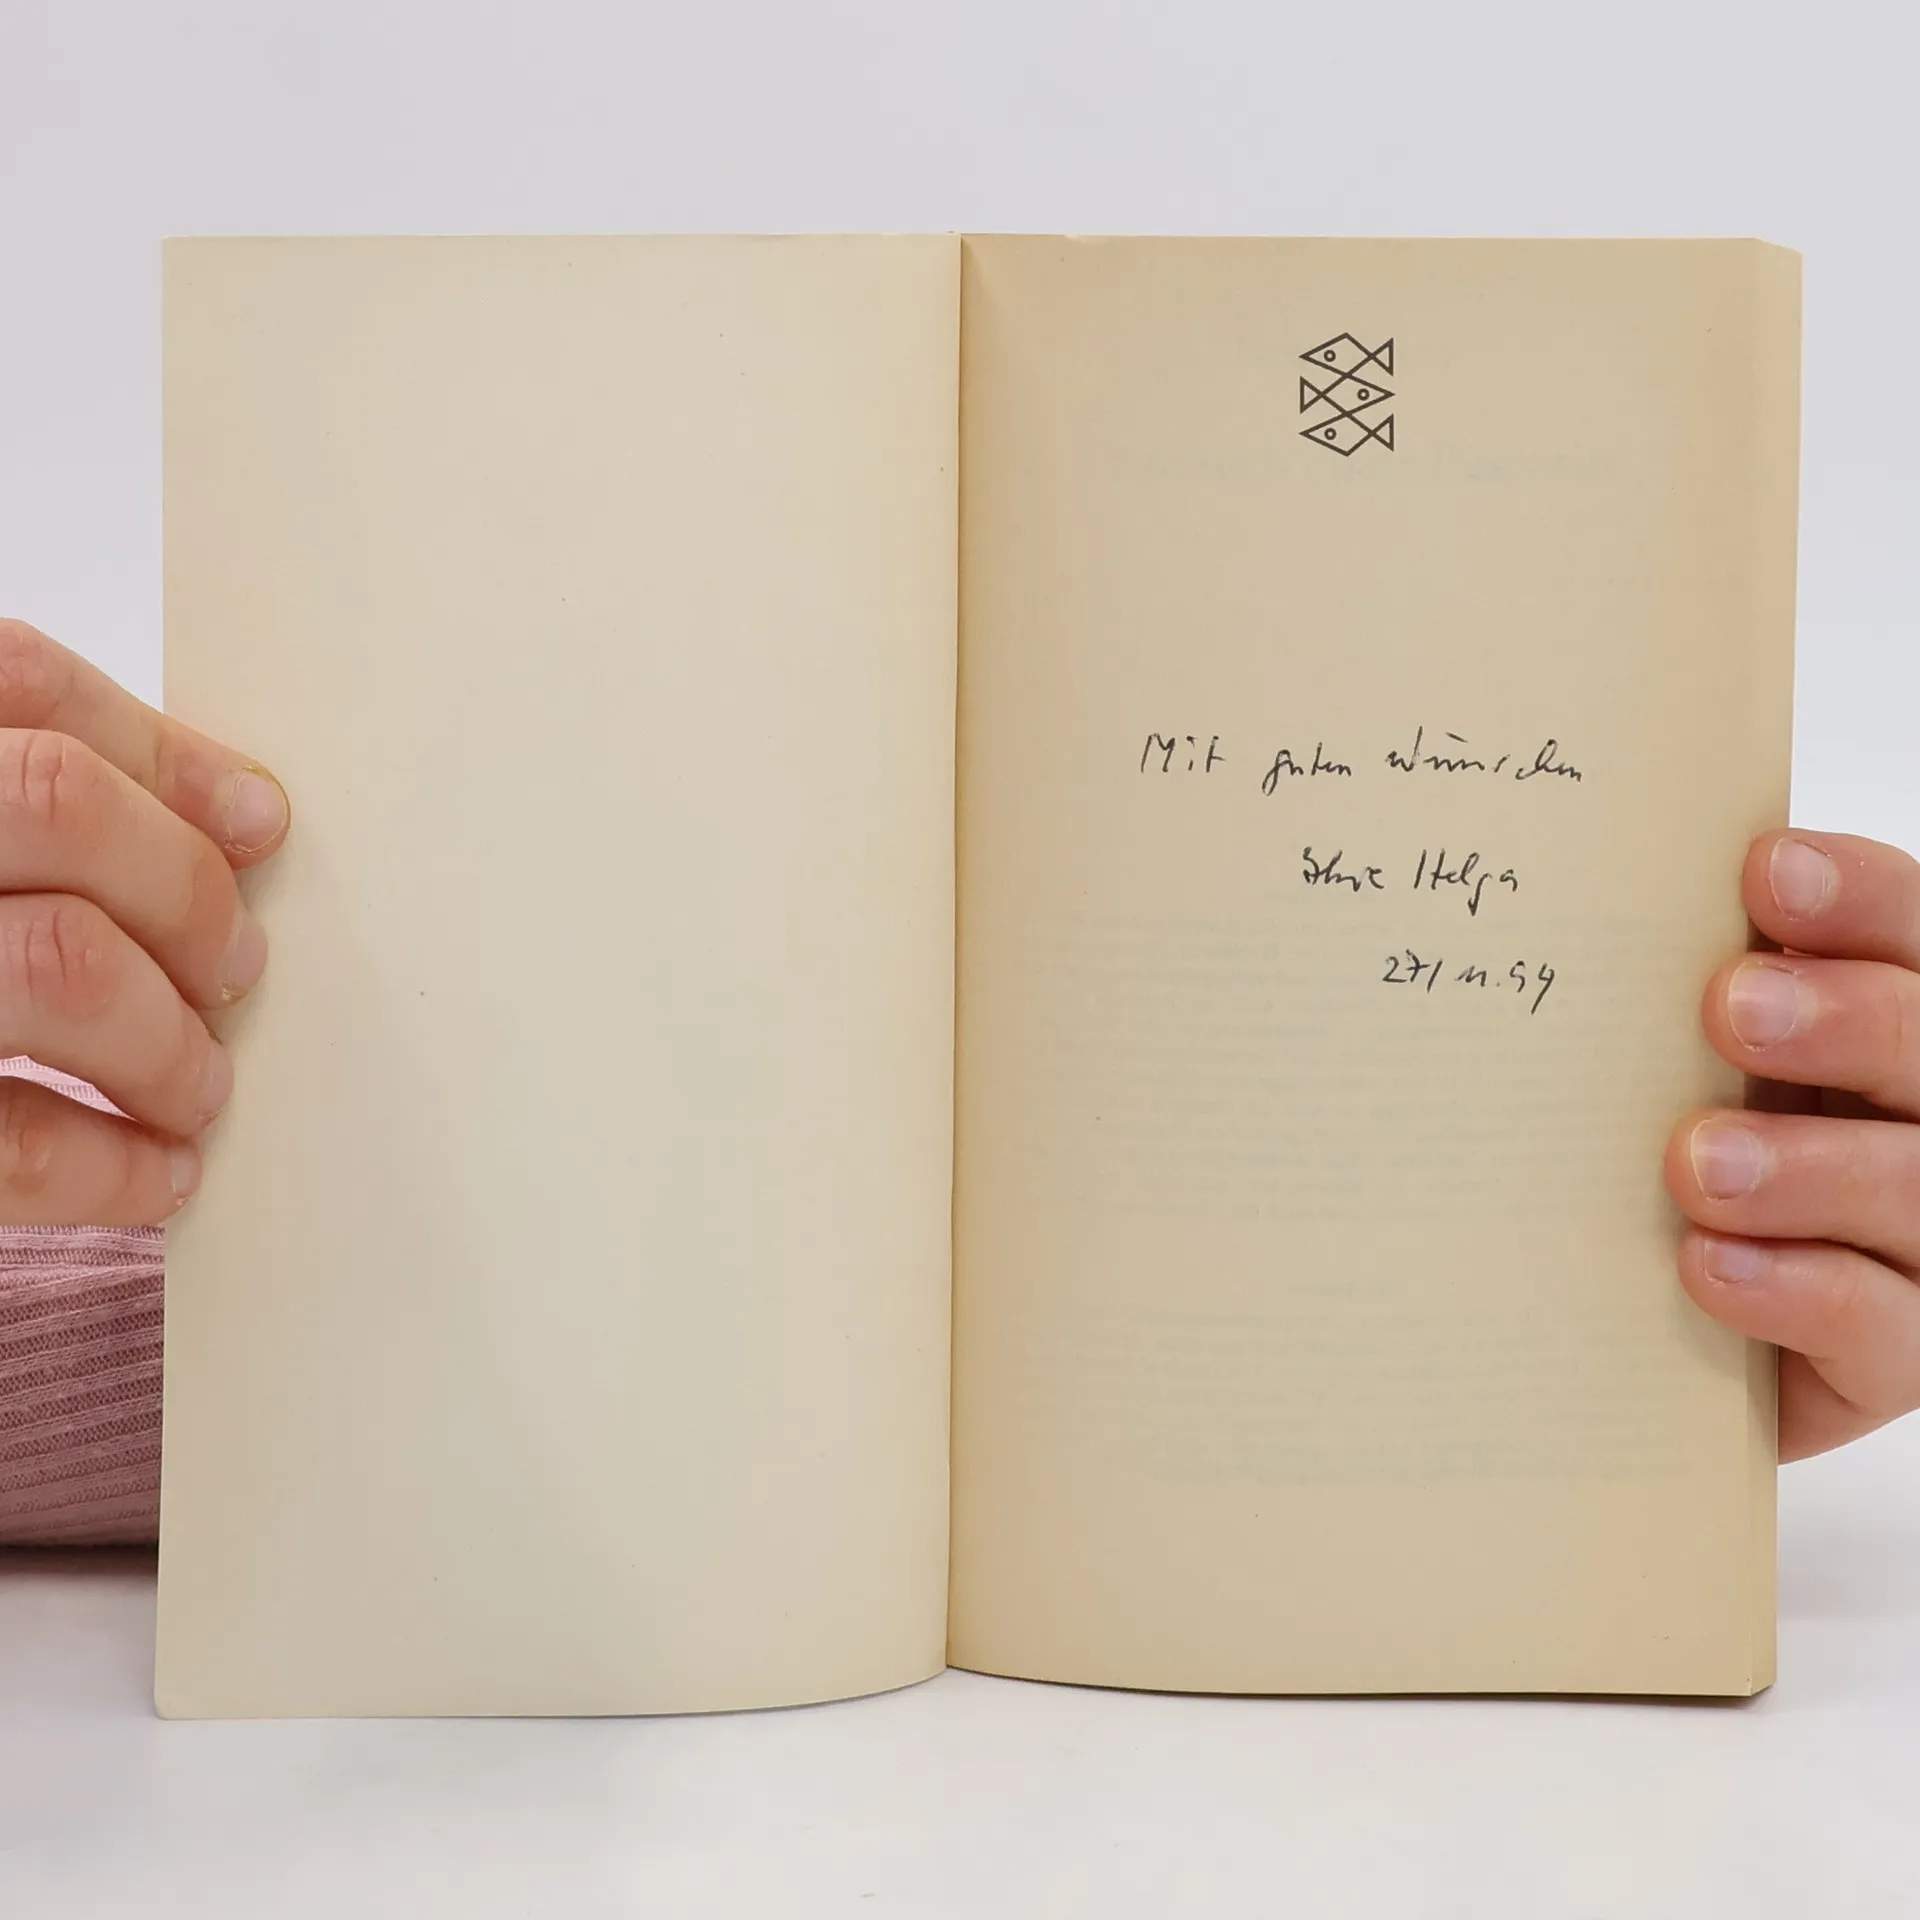 Mit guten Wünschen
Ihre Helga
27/ 11. 94